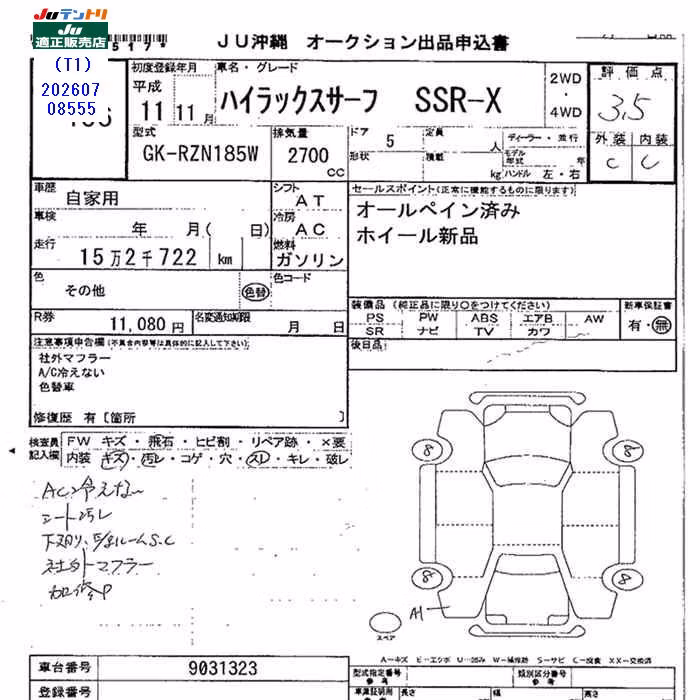 Juテントリ
Ju
適正販売店
517*
JU沖縄 オークション出品申込書
(T1)
202607
08555
初度登録年月
平成
11 11月
車名・グレード
ハイラックスサーフ SSR-X
2WD
・
4WD
評価点
3.5
外装 内装
C C
型式
GK-RZN185W
排気量
2700
cc
ドア
5
形状
定員
人
積載
kg
ディーラー・並行
モデル年式 年
ハンドル 左・右
車歴
自家用
シフト
AT
車検
年 月( 日)
冷房
AC
走行
15万2千722 km
燃料
ガソリン
色
その他
色替
色コード
R券
11,080円
名変通知期限
月 日
セールスポイント(正常に機能するものに限ります)
オールペイン済み
ホイール新品
装備品(純正品に限り○をつけてください)
PS PW ABS エアB AW
SR ナビ TV カワ
新車保証書
有・無
後日品
注意事項申告欄(不具合内容等は具体的に記入して下さい)
社外マフラー
A/C冷えない
色替車
修復歴 有〔箇所 〕
検査員記入欄
FW キズ・飛石・ヒビ割・リペア跡・×要
内装 キズ・汚レ・コゲ・穴・スレ・キレ・破レ
AC冷えな〜
シート汚レ
社外マフラー
加修P
8
8
8
8
A1
スペア
A−キズ E−エクボ U−凹み W−補修跡 S−サビ C−腐食 XX−交換済
車台番号
9031323
登録番号
型式指定番号
参考
類別区分番号
参考
車庫証明用
参考
長さ
幅
高さ